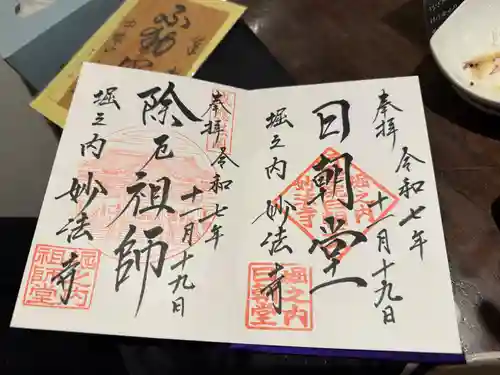 奉拝
令和七年
十一月十九日
日朝堂
堀之内
妙法寺
堀之内
日朝堂
奉拝
令和七年
十一月十九日
除厄祖師
堀之内
妙法寺
堀之内
祖師堂